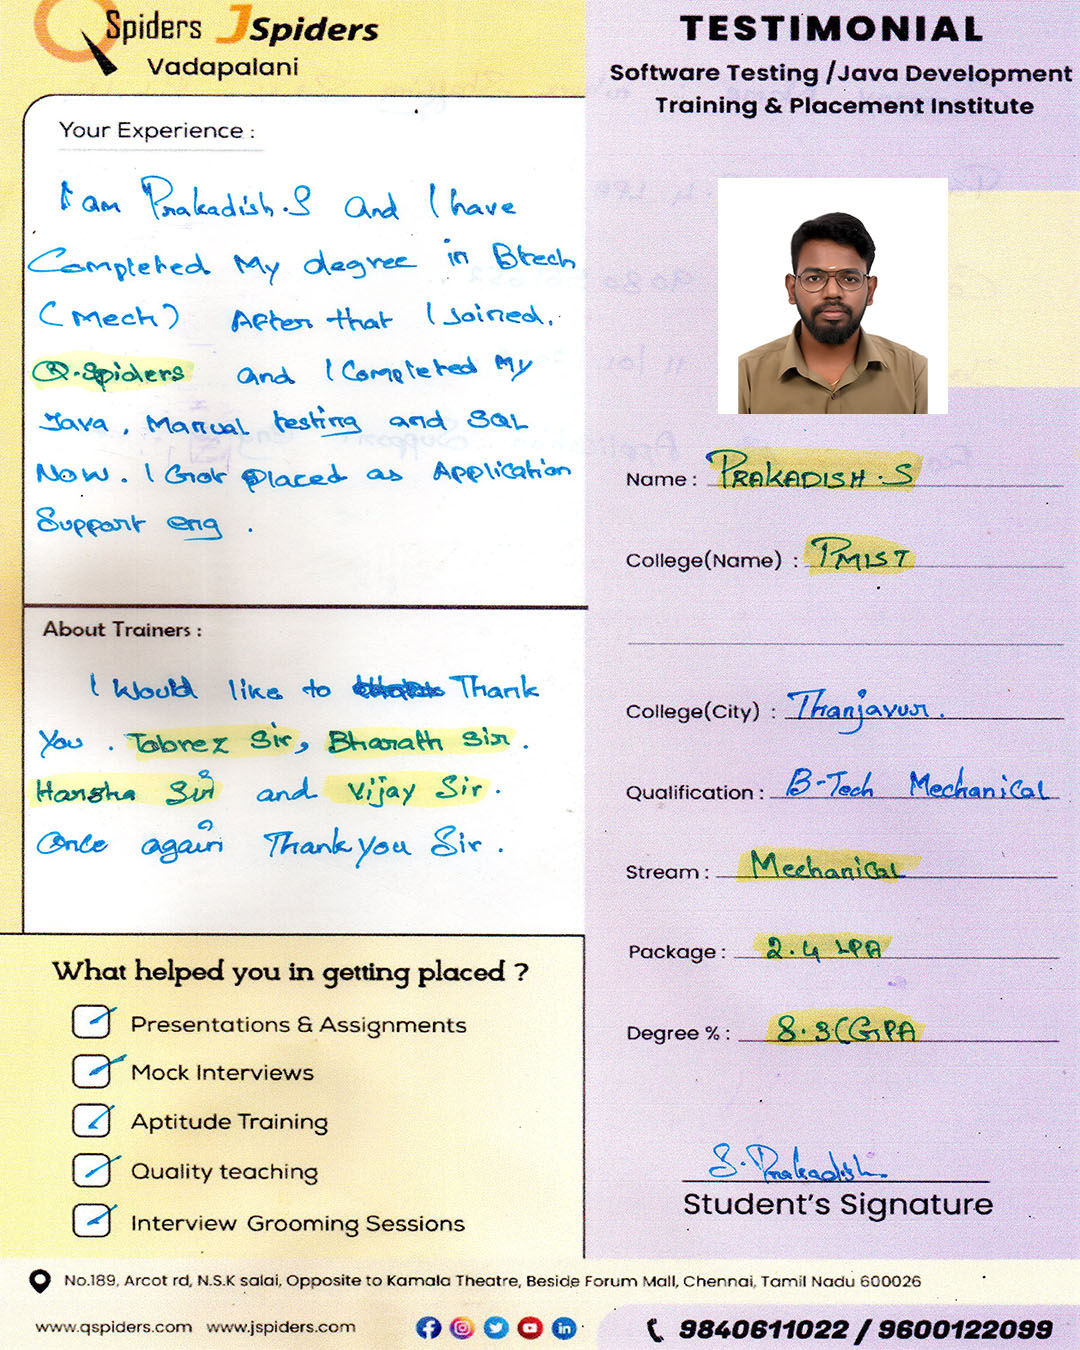 QSpiders JSpiders
Vadapalani
Your Experience :
I am Prakadish.S and I have
Completed My degree in Btech
(Mech) After that I Joined.
Q-Spiders and I Completed My
Java, Manual testing and SQL
Now. I Got placed as Application
Support eng.
About Trainers :
I would like to Thank
You. Tabrez Sir, Bharath Sir.
Harsha Sir and Vijay Sir.
Once again Thank you Sir.
What helped you in getting placed ?
Presentations & Assignments
Mock Interviews
Aptitude Training
Quality teaching
Interview Grooming Sessions
TESTIMONIAL
Software Testing /Java Development
Training & Placement Institute
Name : PRAKADISH.S
College(Name) : PMIST
College(City) : Thanjavur.
Qualification : B-Tech Mechanical
Stream : Mechanical
Package : 2.4 LPA
Degree % : 8.3 CGPA
S. Prakadish
Student's Signature
No.189, Arcot rd, N.S.K salai, Opposite to Kamala Theatre, Beside Forum Mall, Chennai, Tamil Nadu 600026
www.qspiders.com www.jspiders.com
9840611022 / 9600122099